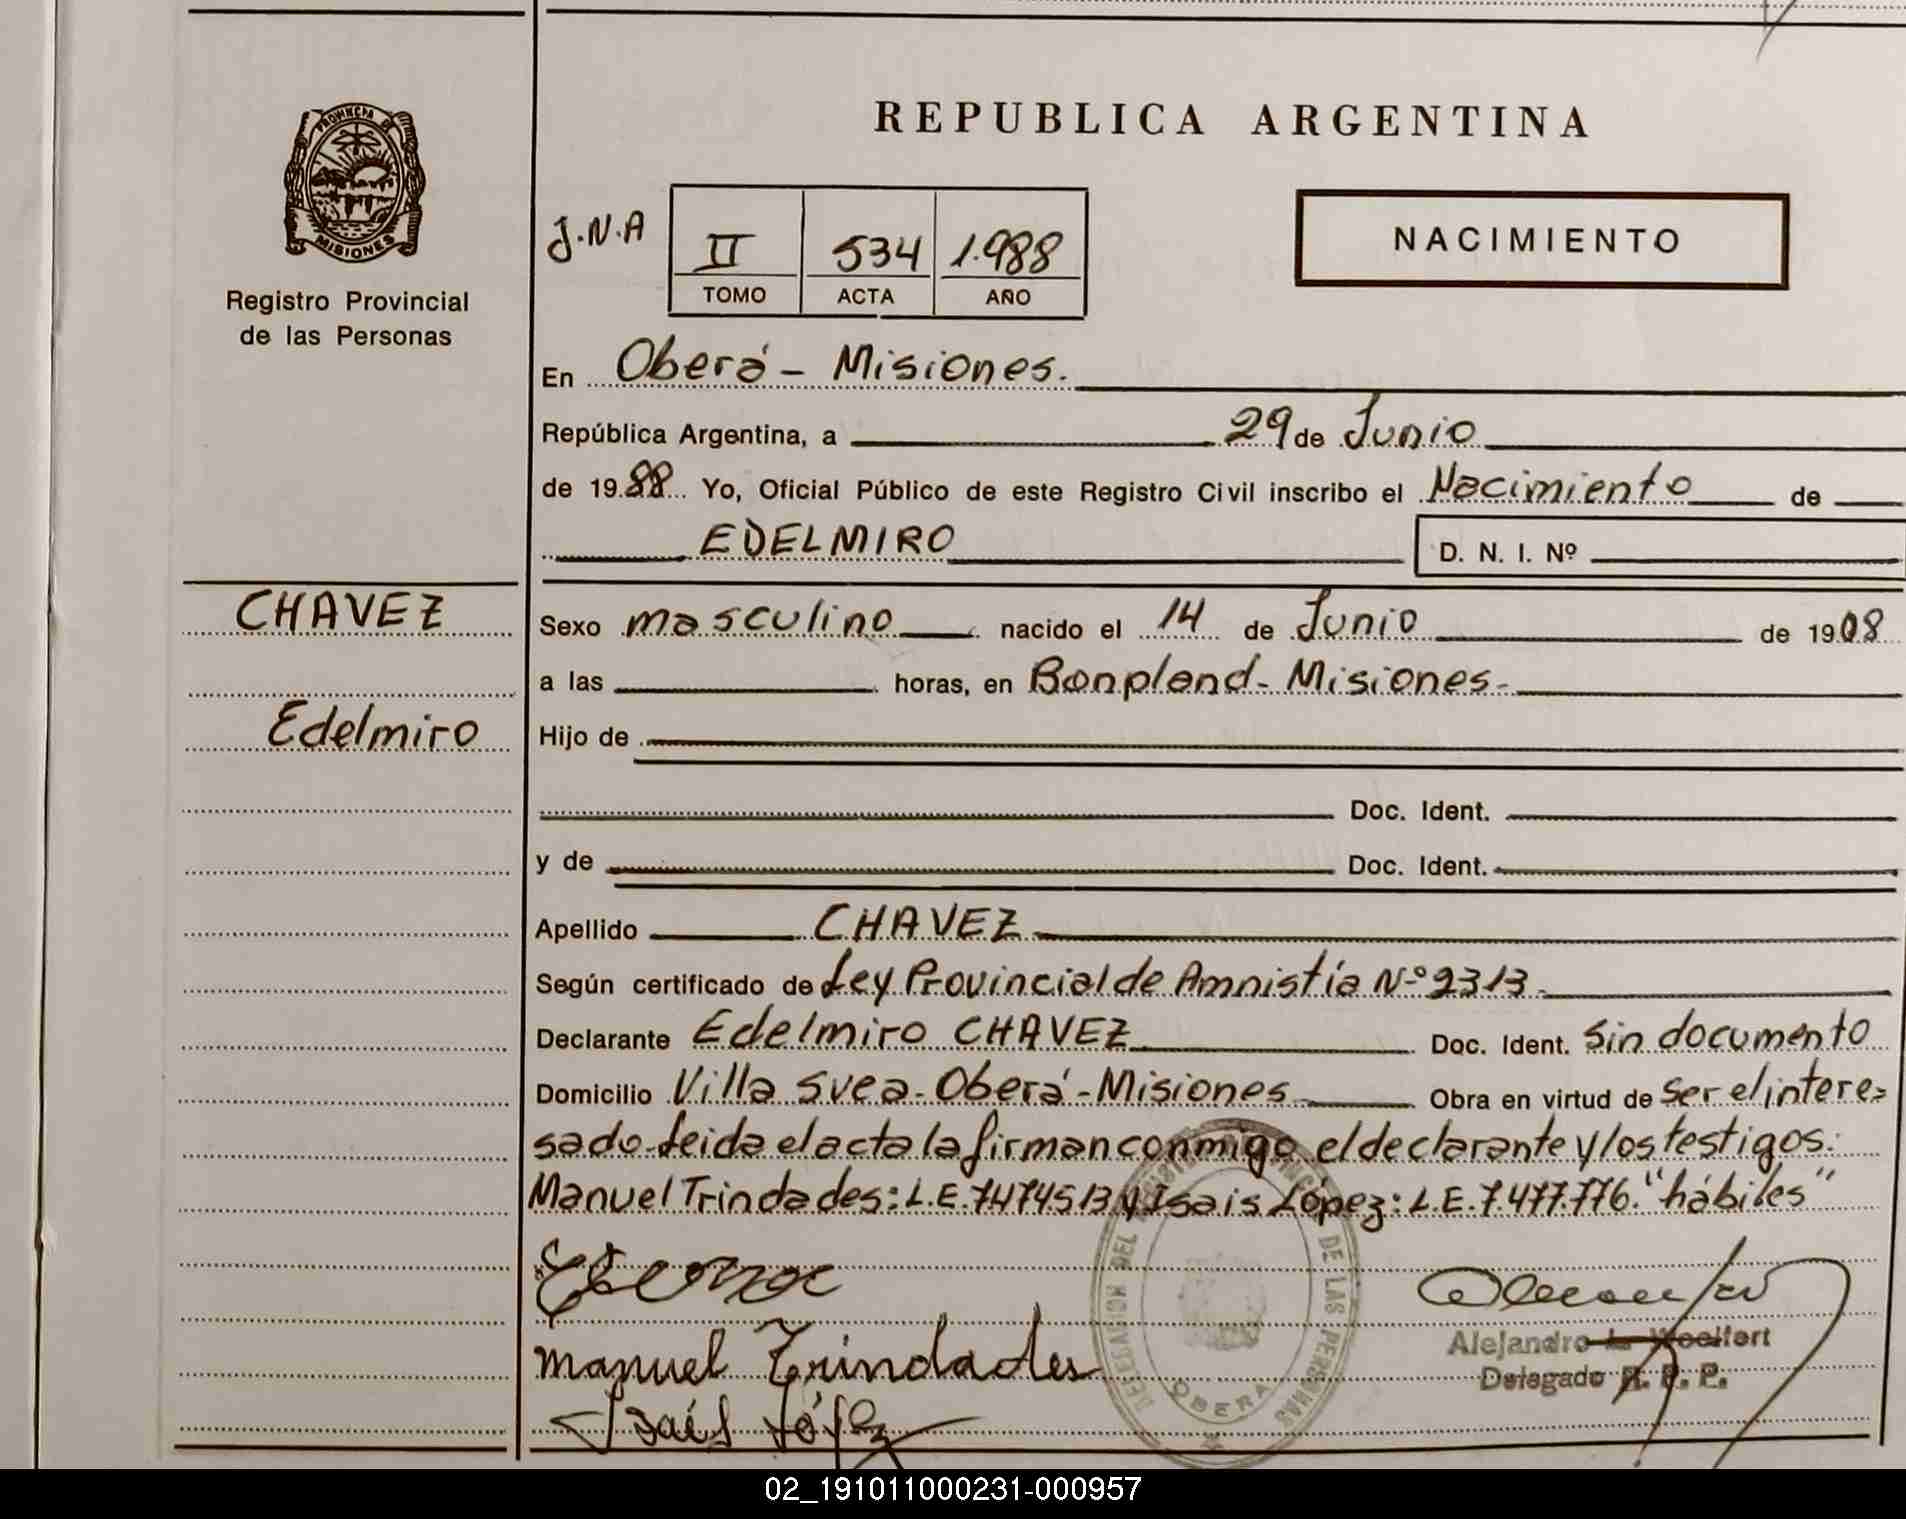 REPUBLICA ARGENTINA
PROVINCIA DE
MISIONES
Registro Provincial
de las Personas
J.N.A
II 534 1.988
TOMO ACTA AÑO
NACIMIENTO
En Oberá - Misiones.
República Argentina, a 29 de Junio
de 1988 Yo, Oficial Público de este Registro Civil inscribo el Nacimiento de
EDELMIRO D. N. I. Nº
CHAVEZ
Edelmiro
Sexo masculino nacido el 14 de Junio de 1908
a las horas, en Bonpland - Misiones -
Hijo de
Doc. Ident.
y de Doc. Ident.
Apellido CHAVEZ
Según certificado de Ley Provincial de Amnistía Nº 2313.
Declarante Edelmiro CHAVEZ Doc. Ident. Sin documento
Domicilio Villa Svea - Oberá - Misiones Obra en virtud de ser el intere=
sado - leida el acta la firman conmigo el declarante y los testigos:
Manuel Trindades: L.E. 7474513 y Isais López: L.E. 7.477.776. "hábiles"
DELEGACION DEL REGISTRO PROVINCIAL DE LAS PERSONAS
OBERA
manuel Trindades
Isaís López
Alejandro L. Woelfert
Delegado R. P. P.
02_191011000231-000957